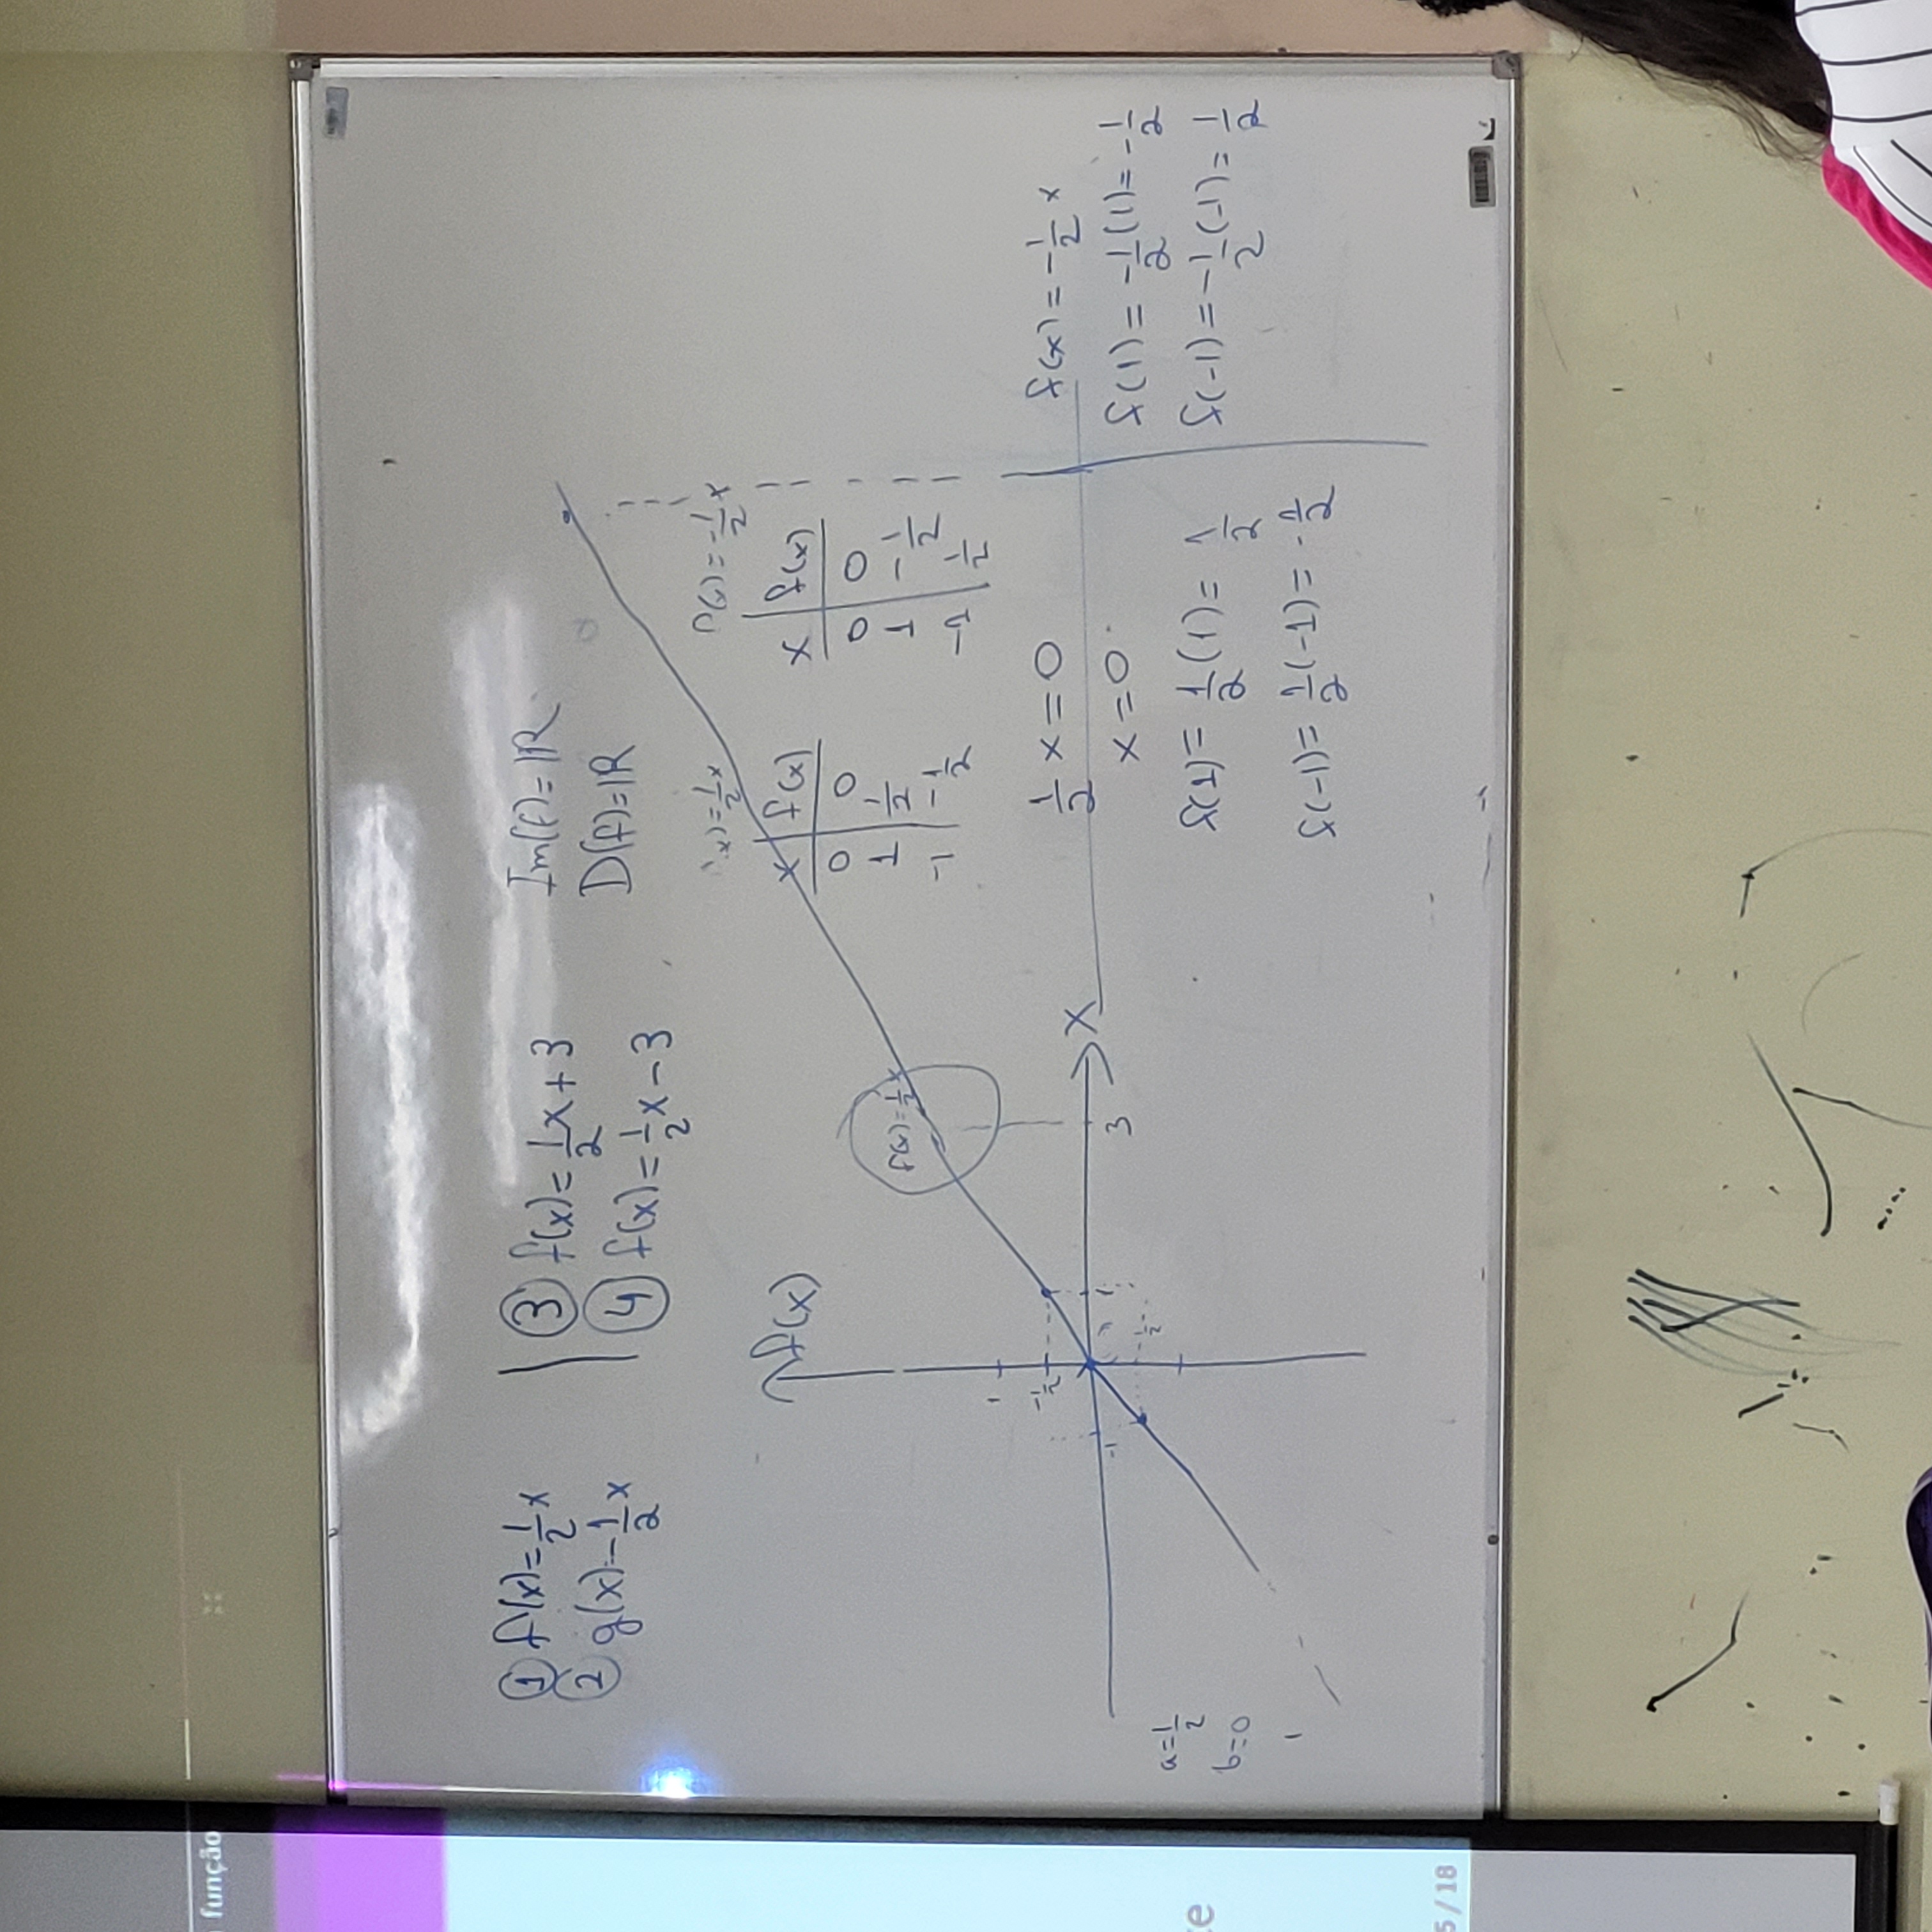 ① f(x)=1/2x
② g(x)=-1/2x
③ f(x)=1/2x+3
④ f(x)=1/2x-3
Im(f)=IR
D(f)=IR
f(x)
f(x)=1/2x
X
1
1/2
-1
3
1/2
a=1/2
b=0
(x)=1/2x
x f(x)
0 0
1 1/2
-1 -1/2
(x)=-1/2x
x f(x)
0 0
1 -1/2
-1 1/2
1/2x=0
x=0
f(1)=1/2(1)=1/2
f(-1)=1/2(-1)=-1/2
f(x)=-1/2x
f(1)=-1/2(1)=-1/2
f(-1)=-1/2(-1)=1/2
função
5/18